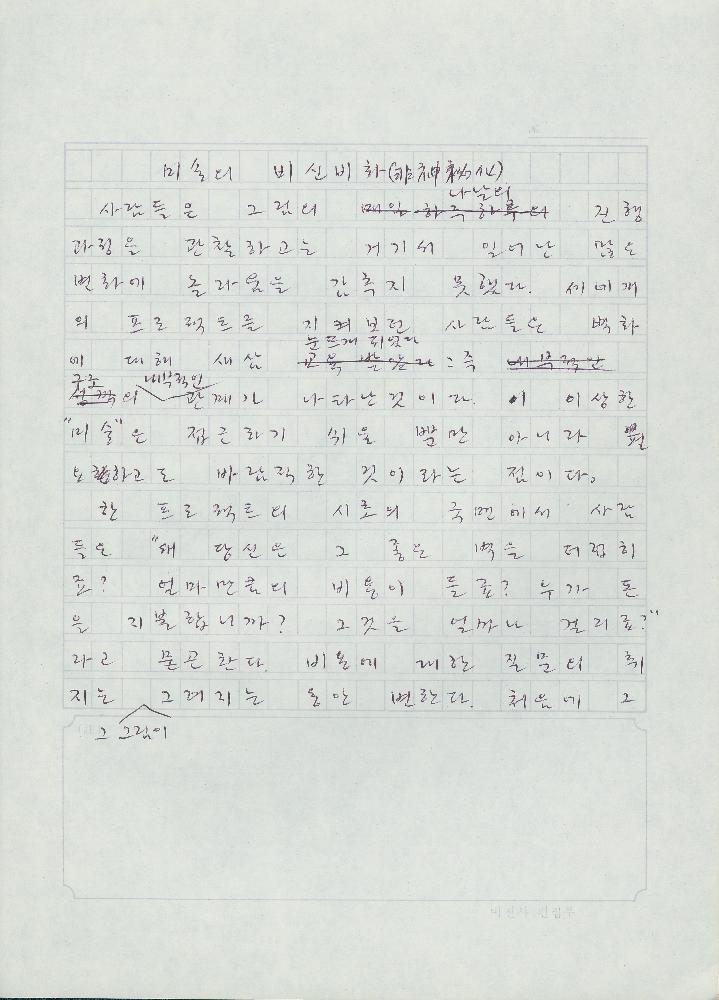 미술의 비신비화(非神秘化)
나날의
사람들은 그림의 매일 하루하루의 진행
과정을 관찰하고는 거기서 일어난 많은
변화에 놀라움을 감추지 못했다. 세네개
의 프로젝트를 지켜보던 사람들은 벽화
눈뜨게 되었다
에 대해 새삼 교육 받았다 : 즉 내부적인
구조 내부적인
의 관계가 나타난것이다. 이 이상한
"미술"은 접근하기 쉬울 뿐만 아니라 필
요하고도 바람직한 것이라는 점이다.
한 프로젝트의 시초의 국면에서 사람
들은 "왜 당신은 그 좋은 벽을 더럽히
죠? 얼마만큼의 비용이 들죠? 누가 돈
을 지불합니까? 그것을 얼마나 걸리죠?"
라고 묻곤한다. 비용에 대한 질문의 취
지는 그려지는 동안 변한다. 처음에 그
그 그림이
편집부